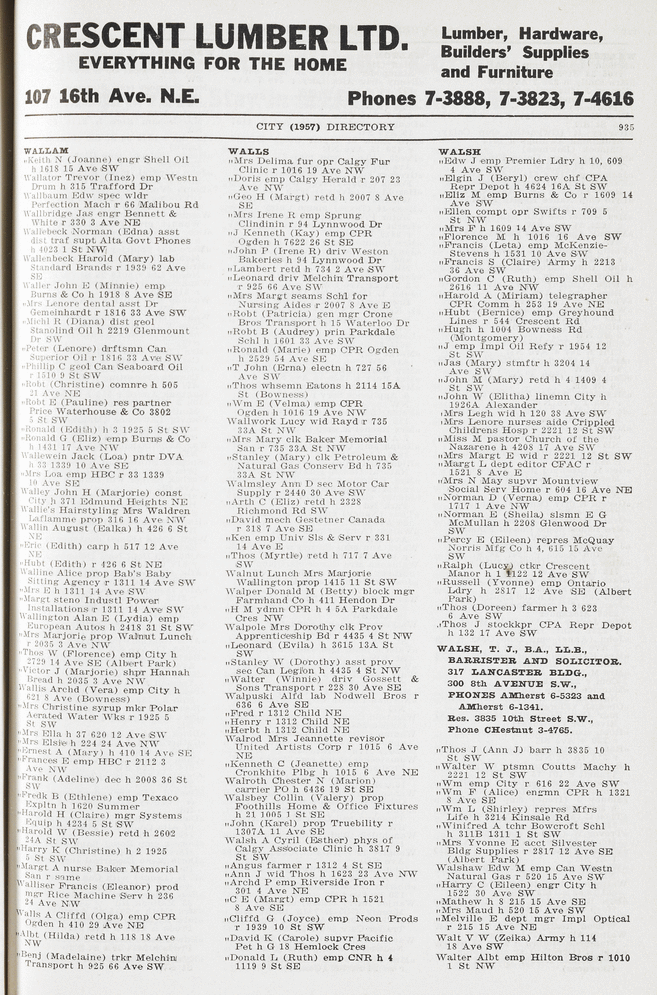 CRESCENT LUMBER LTD.
EVERYTHING FOR THE HOME
107 16th Ave. N.E.
Lumber, Hardware,
Builders' Supplies
and Furniture
Phones 7-3888, 7-3823, 7-4616
CITY (1957) DIRECTORY
935
WALLAM
„Keith N (Joanne) engr Shell Oil
h 1618 15 Ave SW
Wallator Trevor (Inez) emp Westn
Drum h 315 Trafford Dr
Wallbaum Edw spec wldr
Perfection Mach r 66 Malibou Rd
Wallbridge Jas engr Bennett &
White r 330 3 Ave NE
Wallebeck Norman (Edna) asst
dist traf supt Alta Govt Phones
h 4023 1 St NW
Wallenbeck Harold (Mary) lab
Standard Brands r 1939 62 Ave
SE
Waller John E (Minnie) emp
Burns & Co h 1918 8 Ave SE
„Mrs Lenore dental asst Dr
Gemeinhardt r 1816 33 Ave SW
„Michl R (Diana) dist geol
Stanolind Oil h 2219 Glenmount
Dr SW
„Peter (Lenore) drftsmn Can
Superior Oil r 1816 33 Ave SW
„Phillip C geol Can Seaboard Oil
r 1510 9 St SW
„Robt (Christine) comnre h 505
21 Ave NE
„Robt E (Pauline) res partner
Price Waterhouse & Co 3802
5 St SW
„Ronald (Edith) h 3 1925 5 St SW
„Ronald G (Eliz) emp Burns & Co
h 1431 17 Ave NW
Wallewein Jack (Loa) pntr DVA
h 33 1339 10 Ave SE
„Mrs Loa emp HBC r 33 1339
10 Ave SE
Walley John H (Marjorie) const
City h 371 Edmund Heights NE
Wallie's Hairstyling Mrs Waldren
Laflamme prop 316 16 Ave NW
Wallin August (Ealka) h 426 6 St
NE
„Eric (Edith) carp h 517 12 Ave
NE
„Hubt (Edith) r 426 6 St NE
Walline Alice prop Bab's Baby
Sitting Agency r 1311 14 Ave SW
„Mrs E h 1311 14 Ave SW
„Margt steno Industl Power
Installations r 1311 14 Ave SW
Wallington Alan E (Lydia) emp
European Autos h 2418 31 St SW
„Mrs Marjorie prop Walnut Lunch
r 2035 3 Ave NW
„Thos W (Florence) emp City h
2729 14 Ave SE (Albert Park)
„Victor J (Marjorie) shpr Hannah
Bread h 2035 3 Ave NW
Wallis Archd (Vera) emp City h
621 8 Ave (Bowness)
„Mrs Christine syrup mkr Polar
Aerated Water Wks r 1925 5
St SW
„Mrs Ella h 37 620 12 Ave SW
„Mrs Elsie h 224 24 Ave NW
„Ernest A (Mary) h 410 14 Ave SE
„Frances E emp HBC r 2112 3
Ave NW
„Frank (Adeline) dec h 2008 36 St
SW
„Fredk B (Ethlene) emp Texaco
Expltn h 1620 Summer
„Harold H (Claire) mgr Systems
Equip h 4234 5 St SW
„Harold W (Bessie) retd h 2602
24A St SW
„Harry K (Christine) h 2 1925
5 St SW
„Margt A nurse Baker Memorial
San r same
Walliser Francis (Eleanor) prod
mgr Rice Machine Serv h 236
24 Ave NW
Walls A Cliffd (Olga) emp CPR
Ogden h 410 29 Ave NE
„Albt (Hilda) retd h 118 18 Ave
NW
„Benj (Madelaine) trkr Melchin
Transport h 925 66 Ave SW
WALLS
„Mrs Delima fur opr Calgy Fur
Clinic r 1016 19 Ave NW
„Doris emp Calgy Herald r 207 23
Ave NW
„Geo H (Margt) retd h 2007 8 Ave
SE
„Mrs Irene R emp Sprung
Clindinin r 94 Lynnwood Dr
„J Kenneth (Kay) emp CPR
Ogden h 7622 26 St SE
„John P (Irene R) driv Weston
Bakeries h 94 Lynnwood Dr
„Lambert retd h 734 2 Ave SW
„Leonard driv Melchin Transport
r 925 66 Ave SW
„Mrs Margt seams Schl for
Nursing Aides r 2007 8 Ave E
„Robt (Patricia) gen mgr Crone
Bros Transport h 15 Waterloo Dr
„Robt B (Audrey) prin Parkdale
Schl h 1601 33 Ave SW
„Ronald (Marie) emp CPR Ogden
h 2529 54 Ave SE
„T John (Erna) electn h 727 56
Ave SW
„Thos whsemn Eatons h 2114 15A
St (Bowness)
„Wm E (Velma) emp CPR
Ogden h 1016 19 Ave NW
Wallwork Lucy wid Rayd r 735
33A St NW
„Mrs Mary clk Baker Memorial
San r 735 33A St NW
„Stanley (Mary) clk Petroleum &
Natural Gas Conserv Bd h 735
33A St NW
Walmsley Ann D sec Motor Car
Supply r 2440 30 Ave SW
„Arth C (Eliz) retd h 2328
Richmond Rd SW
„David mech Gestetner Canada
r 318 7 Ave SE
„Ken emp Univ Sls & Serv r 331
14 Ave E
„Thos (Myrtle) retd h 717 7 Ave
SW
Walnut Lunch Mrs Marjorie
Wallington prop 1415 11 St SW
Walper Donald M (Betty) block mgr
Farmhand Co h 411 Hendon Dr
„H M ydmn CPR h 4 5A Parkdale
Cres NW
Walpole Mrs Dorothy clk Prov
Apprenticeship Bd r 4435 4 St NW
„Leonard (Evila) h 3615 13A St
SW
„Stanley W (Dorothy) asst prov
sec Can Legion h 4435 4 St NW
„Walter (Winnie) driv Gossett &
Sons Transport r 228 30 Ave SE
Walpuski Alfd lab Nodwell Bros r
636 6 Ave SE
„Fred r 1312 Child NE
„Henry r 1312 Child NE
„Herbt h 1312 Child NE
Walrod Mrs Jeannette revisor
United Artists Corp r 1015 6 Ave
NE
„Kenneth C (Jeanette) emp
Cronkhite Plbg h 1015 6 Ave NE
Walroth Chester N (Marion)
carrier PO h 6436 19 St SE
Walshey Collin (Valery) prop
Foothills Home & Office Fixtures
h 21 1005 1 St SE
„John (Karel) prop Truebility r
1307A 11 Ave SE
Walsh A Cyril (Esther) phys of
Calgy Associate Clinic h 3817 9
St SW
„Angus farmer r 1312 4 St SE
„Ann J wid Thos h 1623 23 Ave NW
„Archd P emp Riverside Iron r
301 4 Ave NE
„C E (Margt) emp CPR h 1521
8 Ave SE
„Cliffd G (Joyce) emp Neon Prods
r 1939 10 St SW
„David K (Carole) supvr Pacific
Pet h G 18 Hemlock Cres
„Donald L (Ruth) emp CNR h 4
1119 9 St SE
WALSH
„Edw J emp Premier Ldry h 10, 609
4 Ave SW
„Elgin J (Beryl) crew chf CPA
Repr Depot h 4624 16A St SW
„Eliz M emp Burns & Co r 1609 14
Ave SW
„Ellen compt opr Swifts r 709 5
St NW
„Mrs F h 1609 14 Ave SW
„Florence M h 1016 16 Ave SW
„Francis (Leta) emp McKenzie-
Stevens h 1531 10 Ave SW
„Francis S (Claire) Army h 2213
36 Ave SW
„Gordon C (Ruth) emp Shell Oil h
2616 11 Ave NW
„Harold A (Miriam) telegrapher
CPR Comm h 253 19 Ave NE
„Hubt (Bernice) emp Greyhound
Lines r 544 Crescent Rd
„Hugh h 1004 Bowness Rd
(Montgomery)
„J emp Impl Oil Refy r 1954 12
St SW
„Jas (Mary) stmftr h 3204 14
Ave SW
„John M (Mary) retd h 4 1409 4
St SW
„John W (Elitha) linemn City h
1926A Alexander
„Mrs Legh wid h 120 38 Ave SW
„Mrs Lenore nurses aide Crippled
Childrens Hosp r 2221 12 St SW
„Miss M pastor Church of the
Nazarene h 4208 17 Ave SW
„Mrs Margt E wid r 2221 12 St SW
„Margt L dept editor CFAC r
1521 8 Ave E
„Mrs N May supvr Mountview
Social Serv Home r 604 16 Ave NE
„Norman D (Verna) emp CPR r
1717 1 Ave NW
„Norman E (Sheila) slsmn E G
McMullan h 2208 Glenwood Dr
SW
„Percy E (Eileen) repres McQuay
Norris Mfg Co h 4, 615 15 Ave
SW
„Ralph (Lucy) ctkr Crescent
Manor h 1 1122 12 Ave SW
„Russell (Yvonne) emp Ontario
Ldry h 2817 12 Ave SE (Albert
Park)
„Thos (Doreen) farmer h 3 623
6 Ave SW
„Thos J stockpr CPA Repr Depot
h 132 17 Ave SW
WALSH, T. J., B.A., LL.B.,
BARRISTER AND SOLICITOR.
317 LANCASTER BLDG.,
300 8th AVENUE S.W.,
PHONES AMherst 6-5323 and
AMherst 6-1341.
Res. 3835 10th Street S.W.,
Phone CHestnut 3-4765.
„Thos J (Ann J) barr h 3835 10
St SW
„Walter W ptsmn Coutts Machy h
2221 12 St SW
„Wm emp City r 616 22 Ave SW
„Wm F (Alice) engmn CPR h 1321
8 Ave SE
„Wm L (Shirley) repres Mfrs
Life h 3214 Kinsale Rd
„Winifred A tchr Bowcroft Schl
h 311B 1311 1 St SW
„Mrs Yvonne E acct Silvester
Bldg Supplies r 2817 12 Ave SE
(Albert Park)
Walshaw Edw M emp Can Westn
Natural Gas r 520 15 Ave SW
„Harry C (Eileen) engr City h
1522 30 Ave SW
„Mathew h 8 215 15 Ave SE
„Mrs Maud h 520 15 Ave SW
„Melville E dept mgr Impl Optical
r 215 15 Ave NE
Walt V W (Zeika) Army h 114
18 Ave SW
Walter Albt emp Hilton Bros r 1010
1 St NW